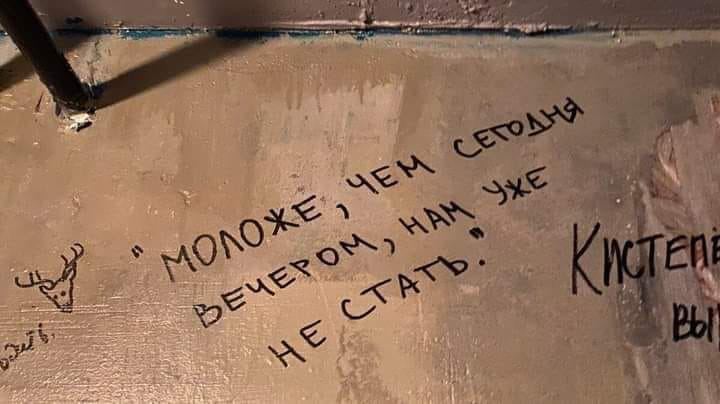 "МОЛОЖЕ, ЧЕМ СЕГОДНЯ
ВЕЧЕРОМ, НАМ УЖЕ
НЕ СТАТЬ."
КИСТЕПЁ
ВЫ